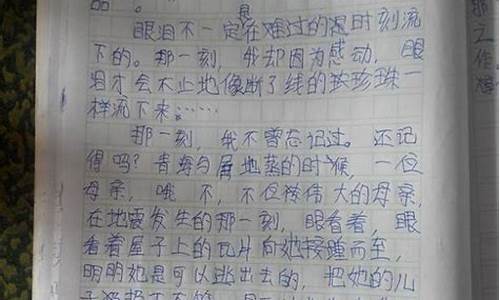 品。
眼泪不一定在难过的时刻流
下的。那一刻,我却因为感动,眼
泪才会不止地像断了线的珍珠一
样流下来……
那一刻,我不曾忘记过。还记
得吗?青海与地的时候,一位
母亲,哦不,不伟大的母亲,
在地震发生的那一刻,眼看着,眼
看着屋子上的瓦片向她接踵而至,
明明她是可以逃出去的,把她的儿
作。